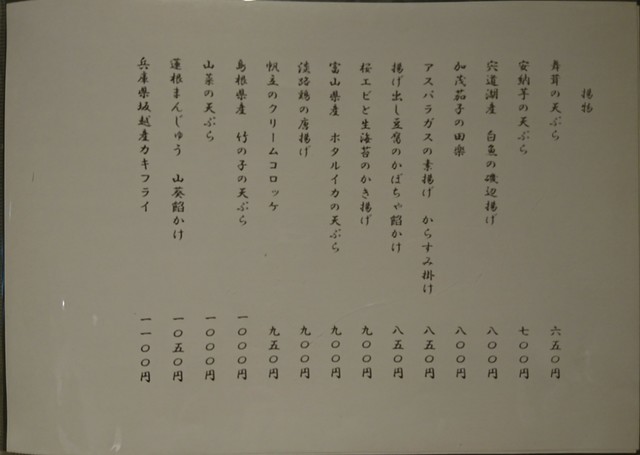 揚物
舞茸の天ぷら 六五〇円
安納芋の天ぷら 七〇〇円
宍道湖産 白魚の磯辺揚げ 八〇〇円
加茂茄子の田楽 八〇〇円
アスパラガスの素揚げ からすみ掛け 八五〇円
揚げ出し豆腐のかぼちゃ餡かけ 八五〇円
桜エビと生海苔のかき揚げ 九〇〇円
富山県産 ホタルイカの天ぷら 九〇〇円
淡路鶏の唐揚げ 九〇〇円
帆立のクリームコロッケ 九五〇円
島根県産 竹の子の天ぷら 一〇〇〇円
山菜の天ぷら 一〇〇〇円
蓮根まんじゅう 山葵餡かけ 一〇五〇円
兵庫県坂越産カキフライ 一一〇〇円